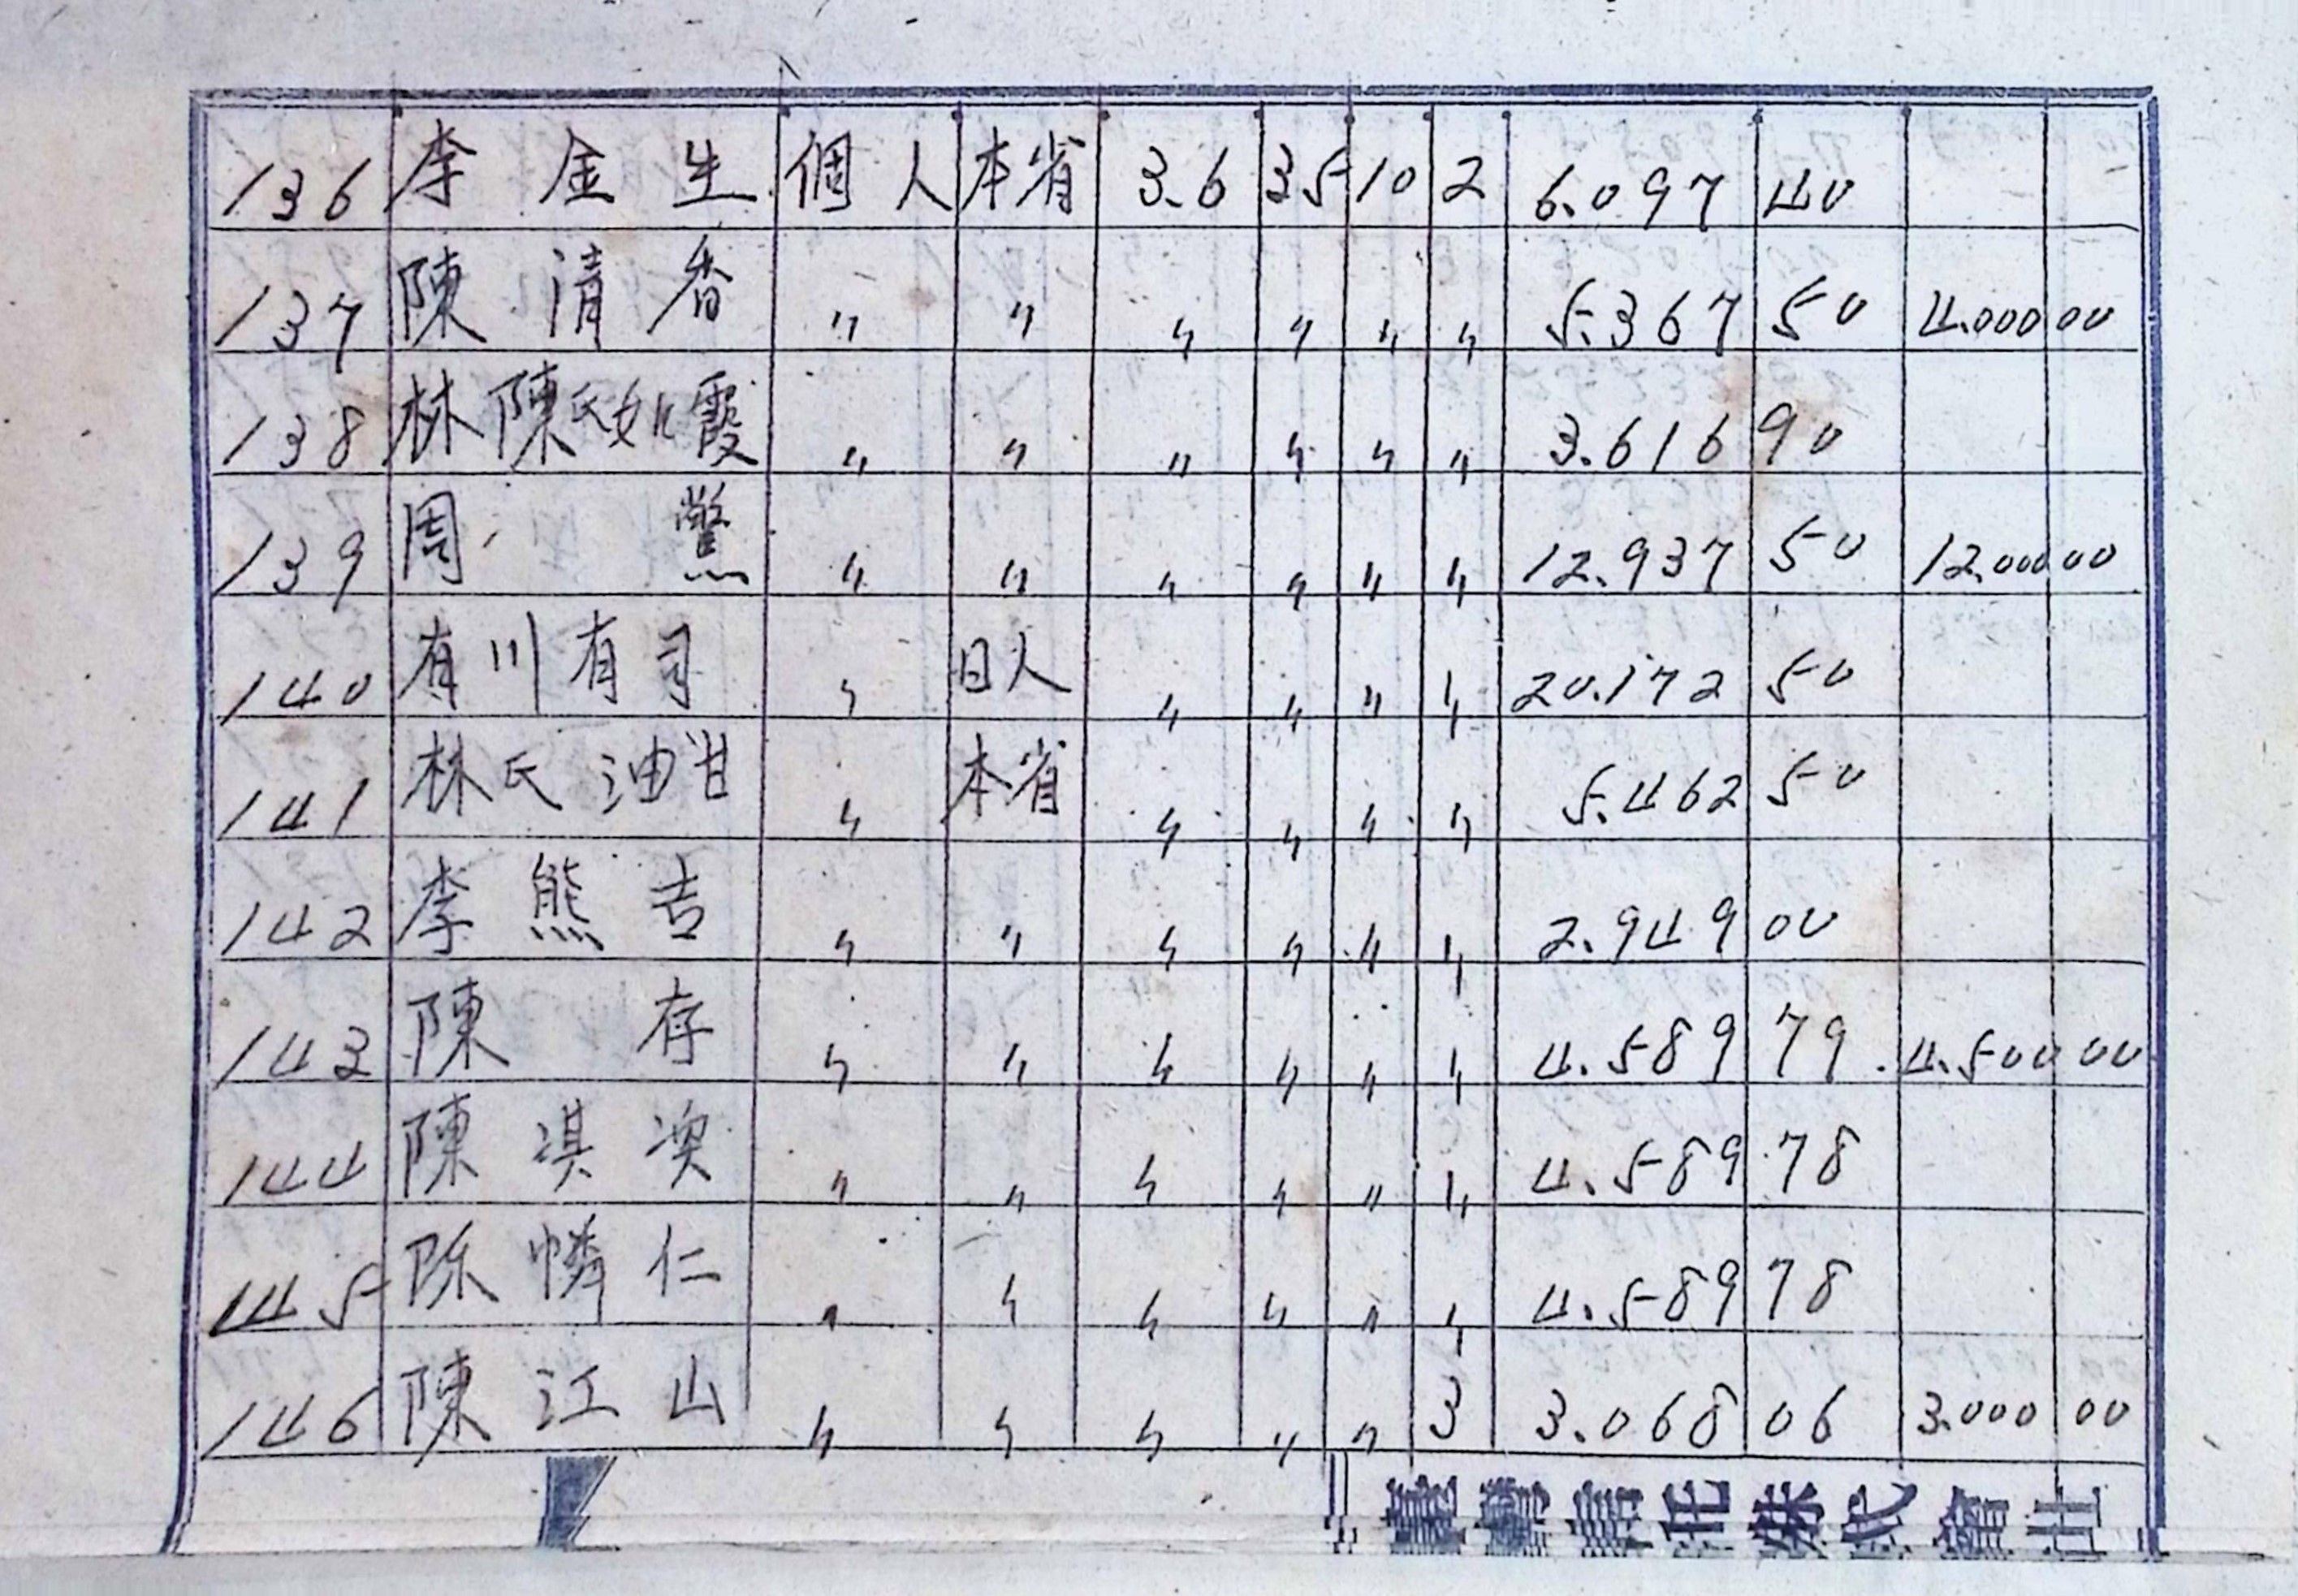 136 李金生 個人 本省 3.6 35 10 2 6.097 40
137 陳清香 〃 〃 〃 〃 〃 〃 5.367 50 4.000 00
138 林陳氏如霞 〃 〃 〃 〃 〃 〃 3.616 90
139 周鱉 〃 〃 〃 〃 〃 〃 12.937 50 12.000 00
140 有川有司 〃 日人 〃 〃 〃 〃 20.172 50
141 林氏油甘 〃 本省 〃 〃 〃 〃 5.462 50
142 李熊吉 〃 〃 〃 〃 〃 〃 2.949 00
143 陳存 〃 〃 〃 〃 〃 〃 4.589 79 4.500 00
144 陳淇 〃 〃 〃 〃 〃 〃 4.589 78
145 陳憐仁 〃 〃 〃 〃 〃 〃 4.589 78
146 陳江山 〃 〃 〃 〃 〃 3 3.068 06 3.000 00
株式會社